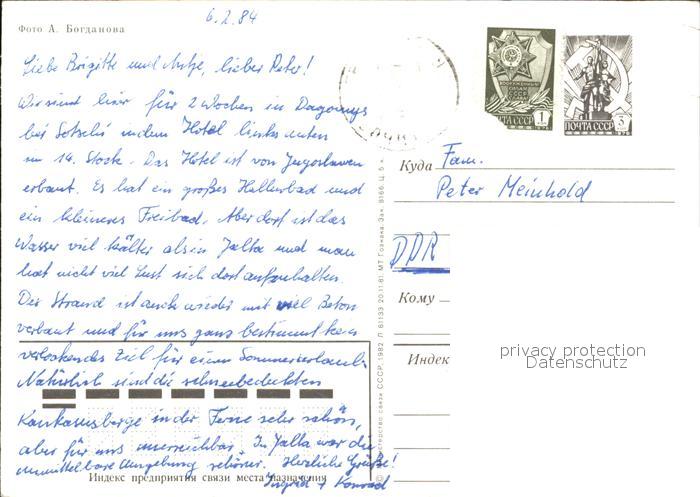 Фото А. Богданова
6.2.84
Liebe Brigitte und Antje, lieber Peter!
Wir sind hier für 2 Wochen in Dagomys
bei Sotschi in dem Hotel links unten
im 14. Stock. Das Hotel ist von Jugoslawen
erbaut. Es hat ein großes Hallenbad und
ein kleineres Freibad. Aber dort ist das
Wasser viel kälter als in Jalta und man
hat nicht viel Lust sich dort aufzuhalten.
Der Strand ist auch wieder mit viel Beton
verbaut und für uns ganz bestimmt kein
verlockendes Ziel für einen Sommerurlaub.
Natürlich sind die schneebedeckten
Kaukasusberge in der Ferne sehr schön,
aber für uns unerreichbar. In Jalta war die
unmittelbare Umgebung schöner. Herzliche Grüße!
Ingrid + Konrad
Индекс предприятия связи места назначения
Министерство связи СССР, 1982. Л 61133 20.11.81. МТ Гознака. Зак. 8166. Ц. 5 к.
ВООРУЖЕННЫЕ
СИЛЫ
СССР
ПОЧТА СССР 1
ПОЧТА СССР 3
Куда Fam.
Peter Meinhold
DDR
Кому
Индекс
privacy protection
Datenschutz